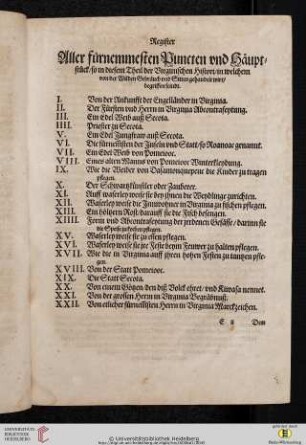 Register
Aller fürnemmesten Puncten vnd Häupt-
stück / so in diesem Theil der Virginischen Histori / in welchem
von der Wilden Gebräuch vnd Sitten gehandelt wirt /
begriffen seindt.
I. Von der Ankunfft der Engelländer in Virginia.
II. Der Fürsten vnd Herrn in Virginia Abcontrafeytung.
III. Ein Edel Weib auß Secota.
IIII. Priester zu Secota.
V. Ein Edel Jungfraw auß Secota.
VI. Die fürnemsten der Inseln vnd Statt / so Roanoac genannt.
VII. Ein Edel Weib von Pomeiooc.
VIII. Eines alten Manns von Pomeiooc Winterkleydung.
IX. Wie die Weiber von Dasamonquepeuc die Kinder zu tragen
pflegen.
X. Der Schwartzkünstler oder Zauberer.
XI. Auff waserley weiß sie bey jhnen die Weydlinge zurichten.
XII. Waserley weiß die Innwohner in Virginia zu fischen pflegen.
XIII. Ein höltzern Rost darauff sie die Fisch besengen.
XIIII. Form vnd Abcontrafeytung der jrrdenen Gefässe / darinn sie
die Speise zu kochen pflegen.
XV. Waserley weiß sie zu essen pflegen.
XVI. Waserley weiß sie jre Feste beym Feuwer zu halten pflegen.
XVII. Wie die in Virginia auff jhren hohen Festen zu tantzen pfle-
gen.
XVIII. Von der Statt Pomeiooc.
XIX. Die Statt Secota.
XX. Von einem Götzen / den diß Volck ehret / vnd Kiwasa nennet.
XXI. Von der grossen Herrn in Virginia Begräbnuß.
XXII. Von etlicher fürnemsten Herrn in Virginia Marckzeichen.
Von
UNIVERSITÄTS-
BIBLIOTHEK
HEIDELBERG
© Universitätsbibliothek Heidelberg